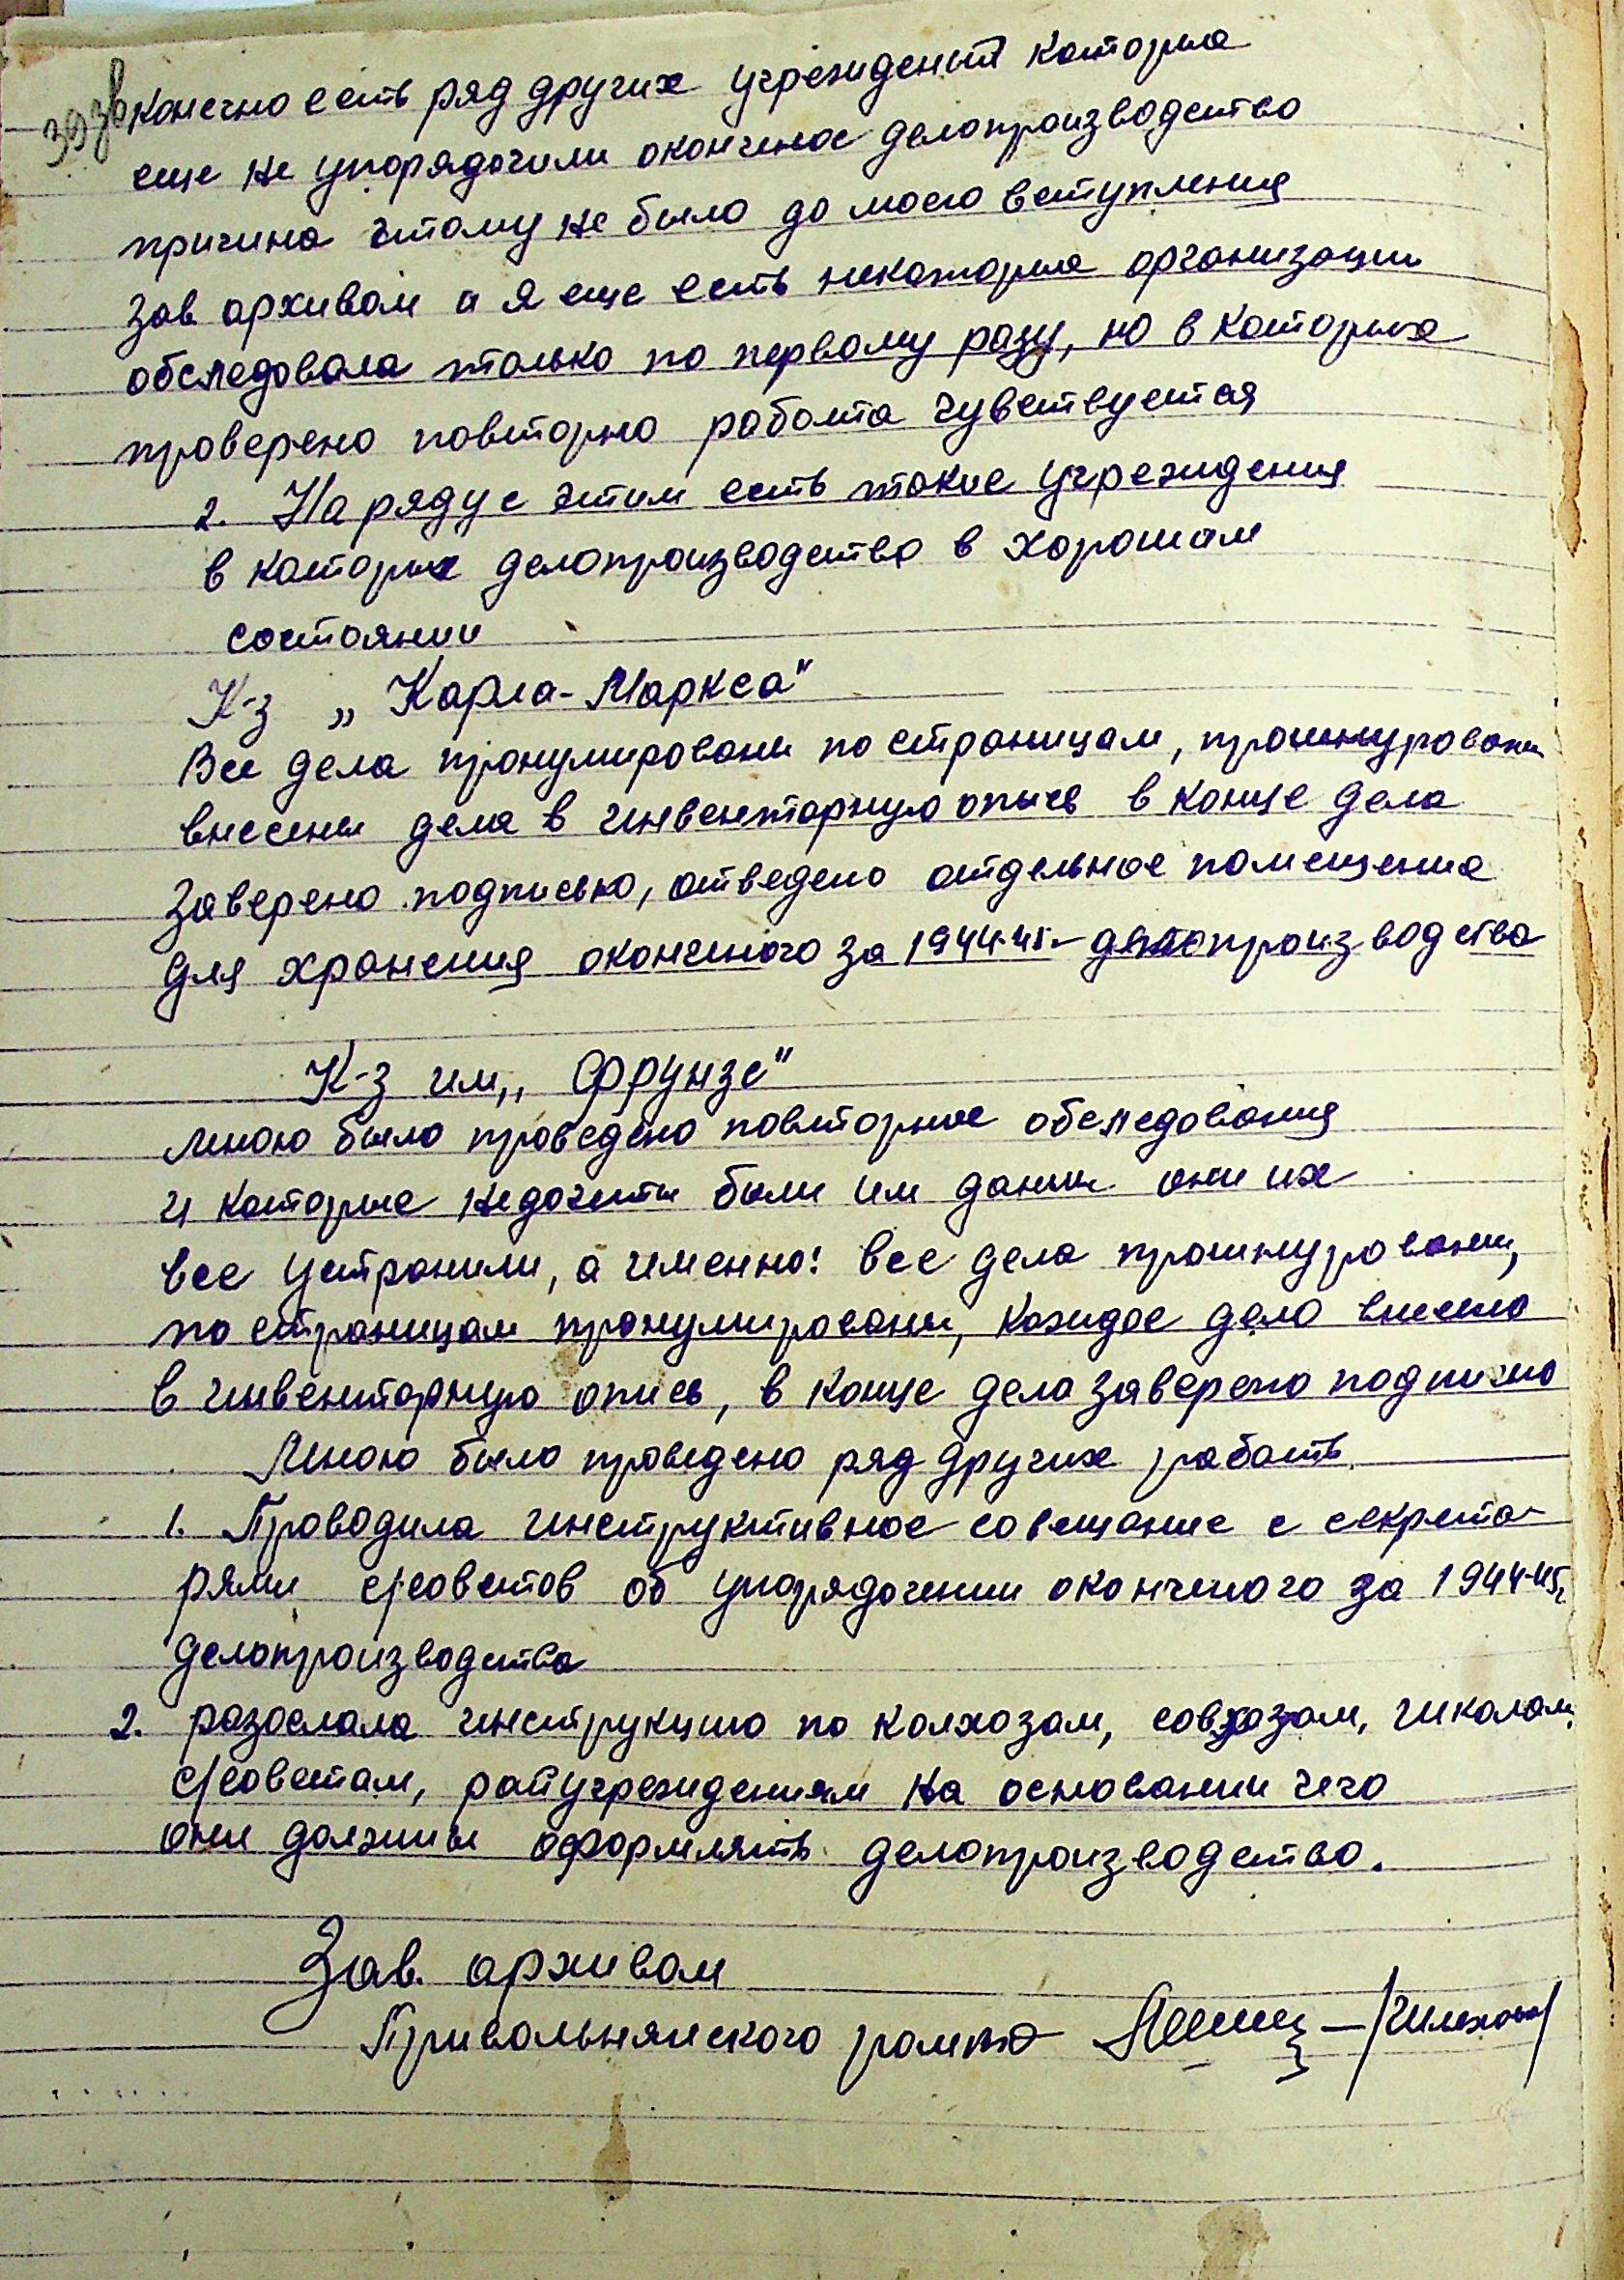 39 зв
Конечно есть ряд других учреждений которые
еще не упорядочили окончено делопроизводство
причина этому не было до моего вступления
Зав. архивом и я еще есть некоторые организации
обследовала только по первому разу, но в которых
проверено повторно работа чувствуется
2. На ряду с этим есть такие учреждения
в которых делопроизводство в хорошем
состоянии
К-з „Карла-Маркса"
Все дела пронумированы по страницам, прошнурованы
внесены дела в инвентарную опись в конце дела
Заверено подписью, отведено отдельное помещение
для хранения окончено го за 1944-45г делопроизводства
К-з им „Фрунзе"
Мною было проведено повторное обследования
и которые недочеты были им даны они их
все устранили, а именно: все дела прошнурованы,
по страницам пронумированы, каждое дело внесено
в инвентарную опись, в конце дела заверено подписью
Мною было проведено ряд других работ.
1. Проводила инструктивное совещание с секрета-
рями с/советов об упорядочении оконченого за 1944-45г.
делопроизводства
2. разослала инструкцию по колхозам, совхозам, школам,
с/советам, райучреждениям на основании чего
они должны оформлять делопроизводство.
Зав. архивом
Привольнянского